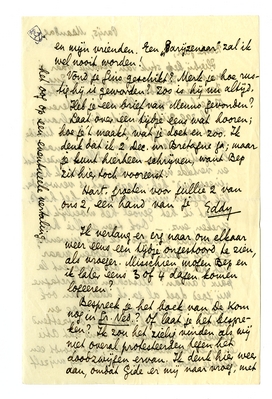 en mijn vrienden. Een "Parijzenaar" zal ik
wel nooit worden!
Vond je Guus geschikt? Merk je hoe rus-
tig hij is geworden? Zoo is hij nu altijd.
Heb je een brief van Menno gevonden?
Laat over een tijdje eens wat hooren;
hoe je 't maakt, wat je doet en zoo. Ik
denk dat ik 2 Dec. in Bretagne ga, maar
je kunt hierheen schrijven, want Bep
zit hier toch vooreerst.
Hart. groeten voor jullie 2 van
ons 2, een hand van je Eddy
Ik verlang er erg naar om elkaar
weer eens een tijdje ongestoord te zien
als vroeger. Misschien mogen Bep en
ik later eens 3 of 4 dagen komen
logeeren?
Bespreek je het boek van De Kom
nog in Gr. Ned.? Of laat je het bespre-
ken? Ik zou het zielig vinden als wij
niet overal protesteerden tegen het
doodzwijgen ervan. Ik denk hier weer
aan, omdat Gide er mij naar vroeg, met
het oog op een eventueele vertaling.